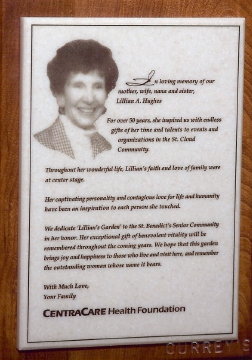 In loving memory of our
mother, wife, nana and sister,
Lillian A. Hughes
For over 50 years, she inspired us with endless
gifts of her time and talents to events and
organizations in the St. Cloud
Community.
Throughout her wonderful life, Lillian's faith and love of family were
at center stage.
Her captivating personality and contagious love for life and humanity
have been an inspiration to each person she touched.
We dedicate 'Lillian's Garden' to the St. Benedict's Senior Community
in her honor. Her exceptional gift of benevolent vitality will be
remembered throughout the coming years. We hope that this garden
brings joy and happiness to those who live and visit here, and remember
the outstanding woman whose name it bears.
With Much Love,
Your Family
CENTRACARE Health Foundation